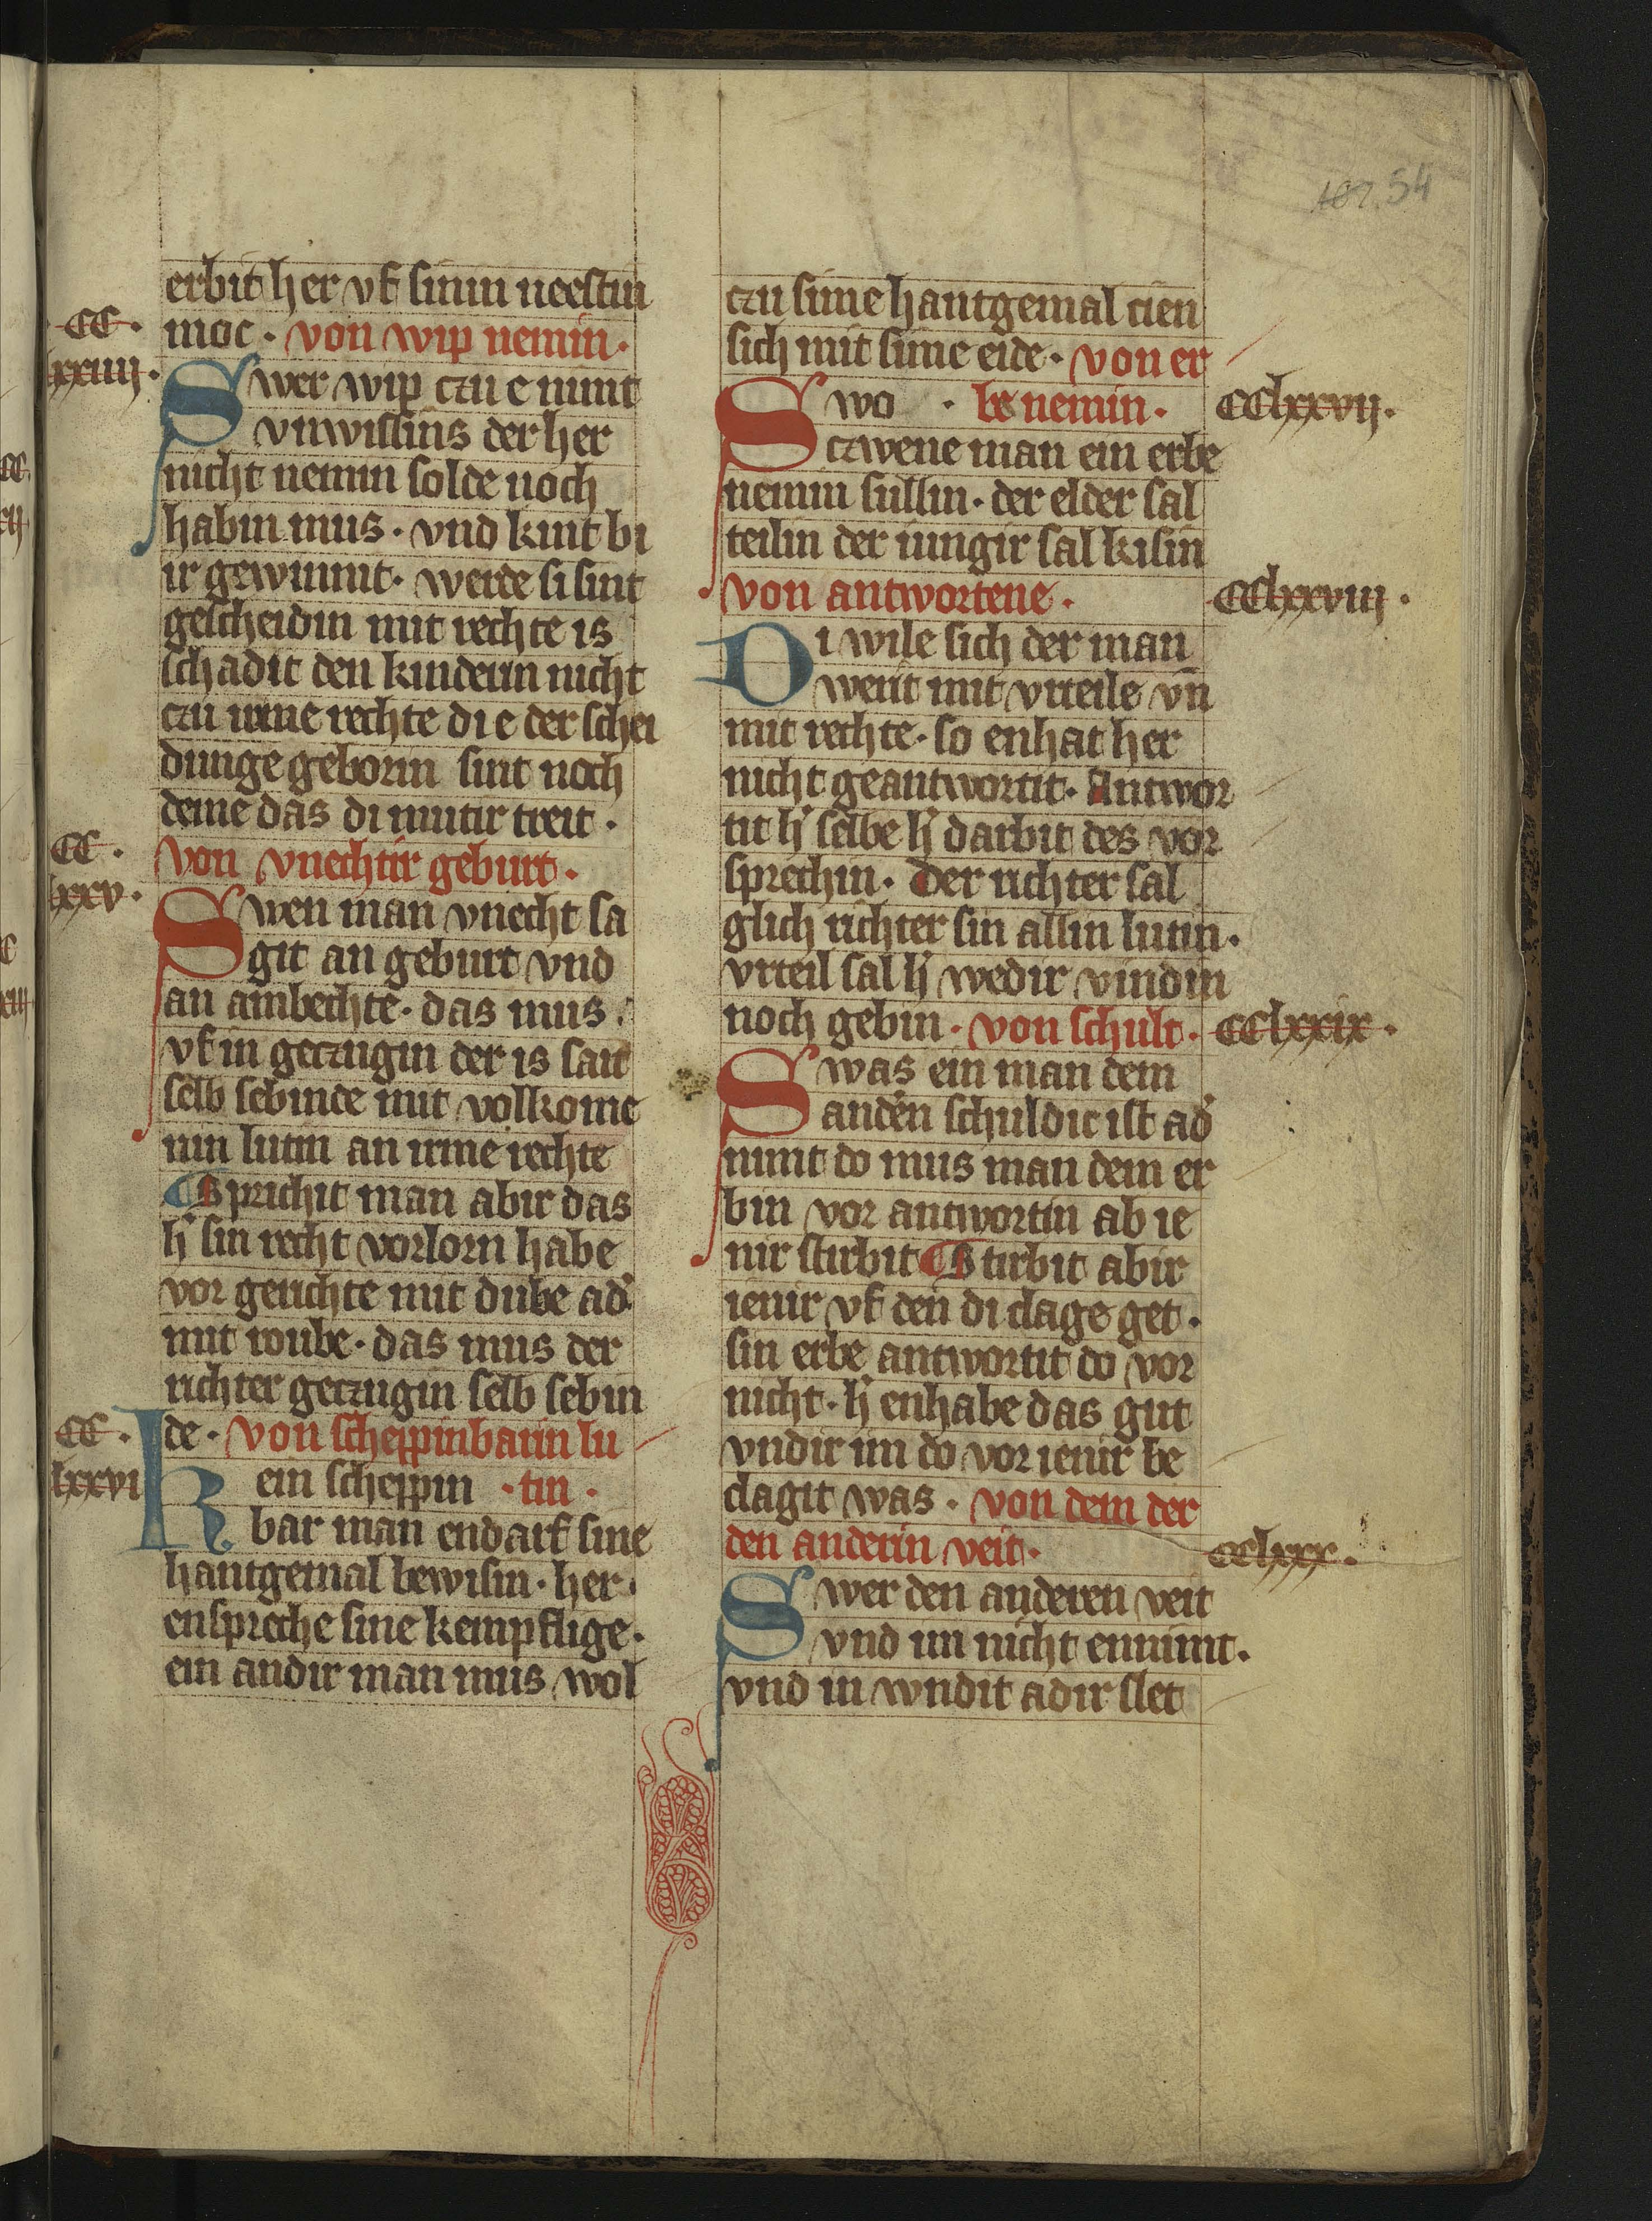 107. 54
erbit her vf sinin neestin
CC.
moc . von wip nemin .
lxxiiii .
Swer wip czu e nimt
vnwissins der her
nicht nemin solde noch
habin mus . vnd kint bi
ir gewinnit . werde si sint
gescheidin mit rechte is
schadit den kinderin nicht
czu irme rechte di e der schei
dunge geborin sint noch
deme das di mutir treit .
CC .
von vnechtir geburt .
lxxv .
Swen man vnecht sa
git an geburt vnd
an ambechte . das mus
vf in geczugin der is sait
selb sebinde mit volkome
nin lutin an irme rechte
Sprichit man abir das
h̾ sin recht vorlorn habe
vor gerichte mit dube ad̾
mit roube . das mus der
richter geczugin selb sebin
CC .
de . von scheppinbarin lu
lxxvi
Kein scheppin . tin .
bar man endarf sine
hantgemal bewisin . her
enspreche sine kempflige .
ein andir man mus wol
czu sime hantgemal cien
sich mit sime eide . von er
Swo . be nemin . CClxxvij .
czwene man ein erbe
nemin sullin . der elder sal
teilin der iungir sal kisin
von antwortene . CClxxviij .
Di wile sich der man
werit mit vrteile vn̄
mit rechte . so enhat her
nicht geantwortit . Antwor
tit h̾ selbe h̾ darbit des vor
sprechin . Der richter sal
glich richter sin allin lutin .
vrteil sal h̾ wedir vindin
noch gebin . von schult . CClxxix .
Swas ein man dem
and̾en schuldic ist ad̾
nimt do mus man dem er
bin vor antwortin ab ie
nir stirbit Stirbit abir
ienir vf den di clage get .
sin erbe antwortit do vor
nicht . h̾ enhabe das gut
vndir im do vor ienir be
clagit was . von dem der
den anderin veit . CClxxx .
Swer den anderen veit
vnd im nicht ennimt .
vnd in wndit adir slet